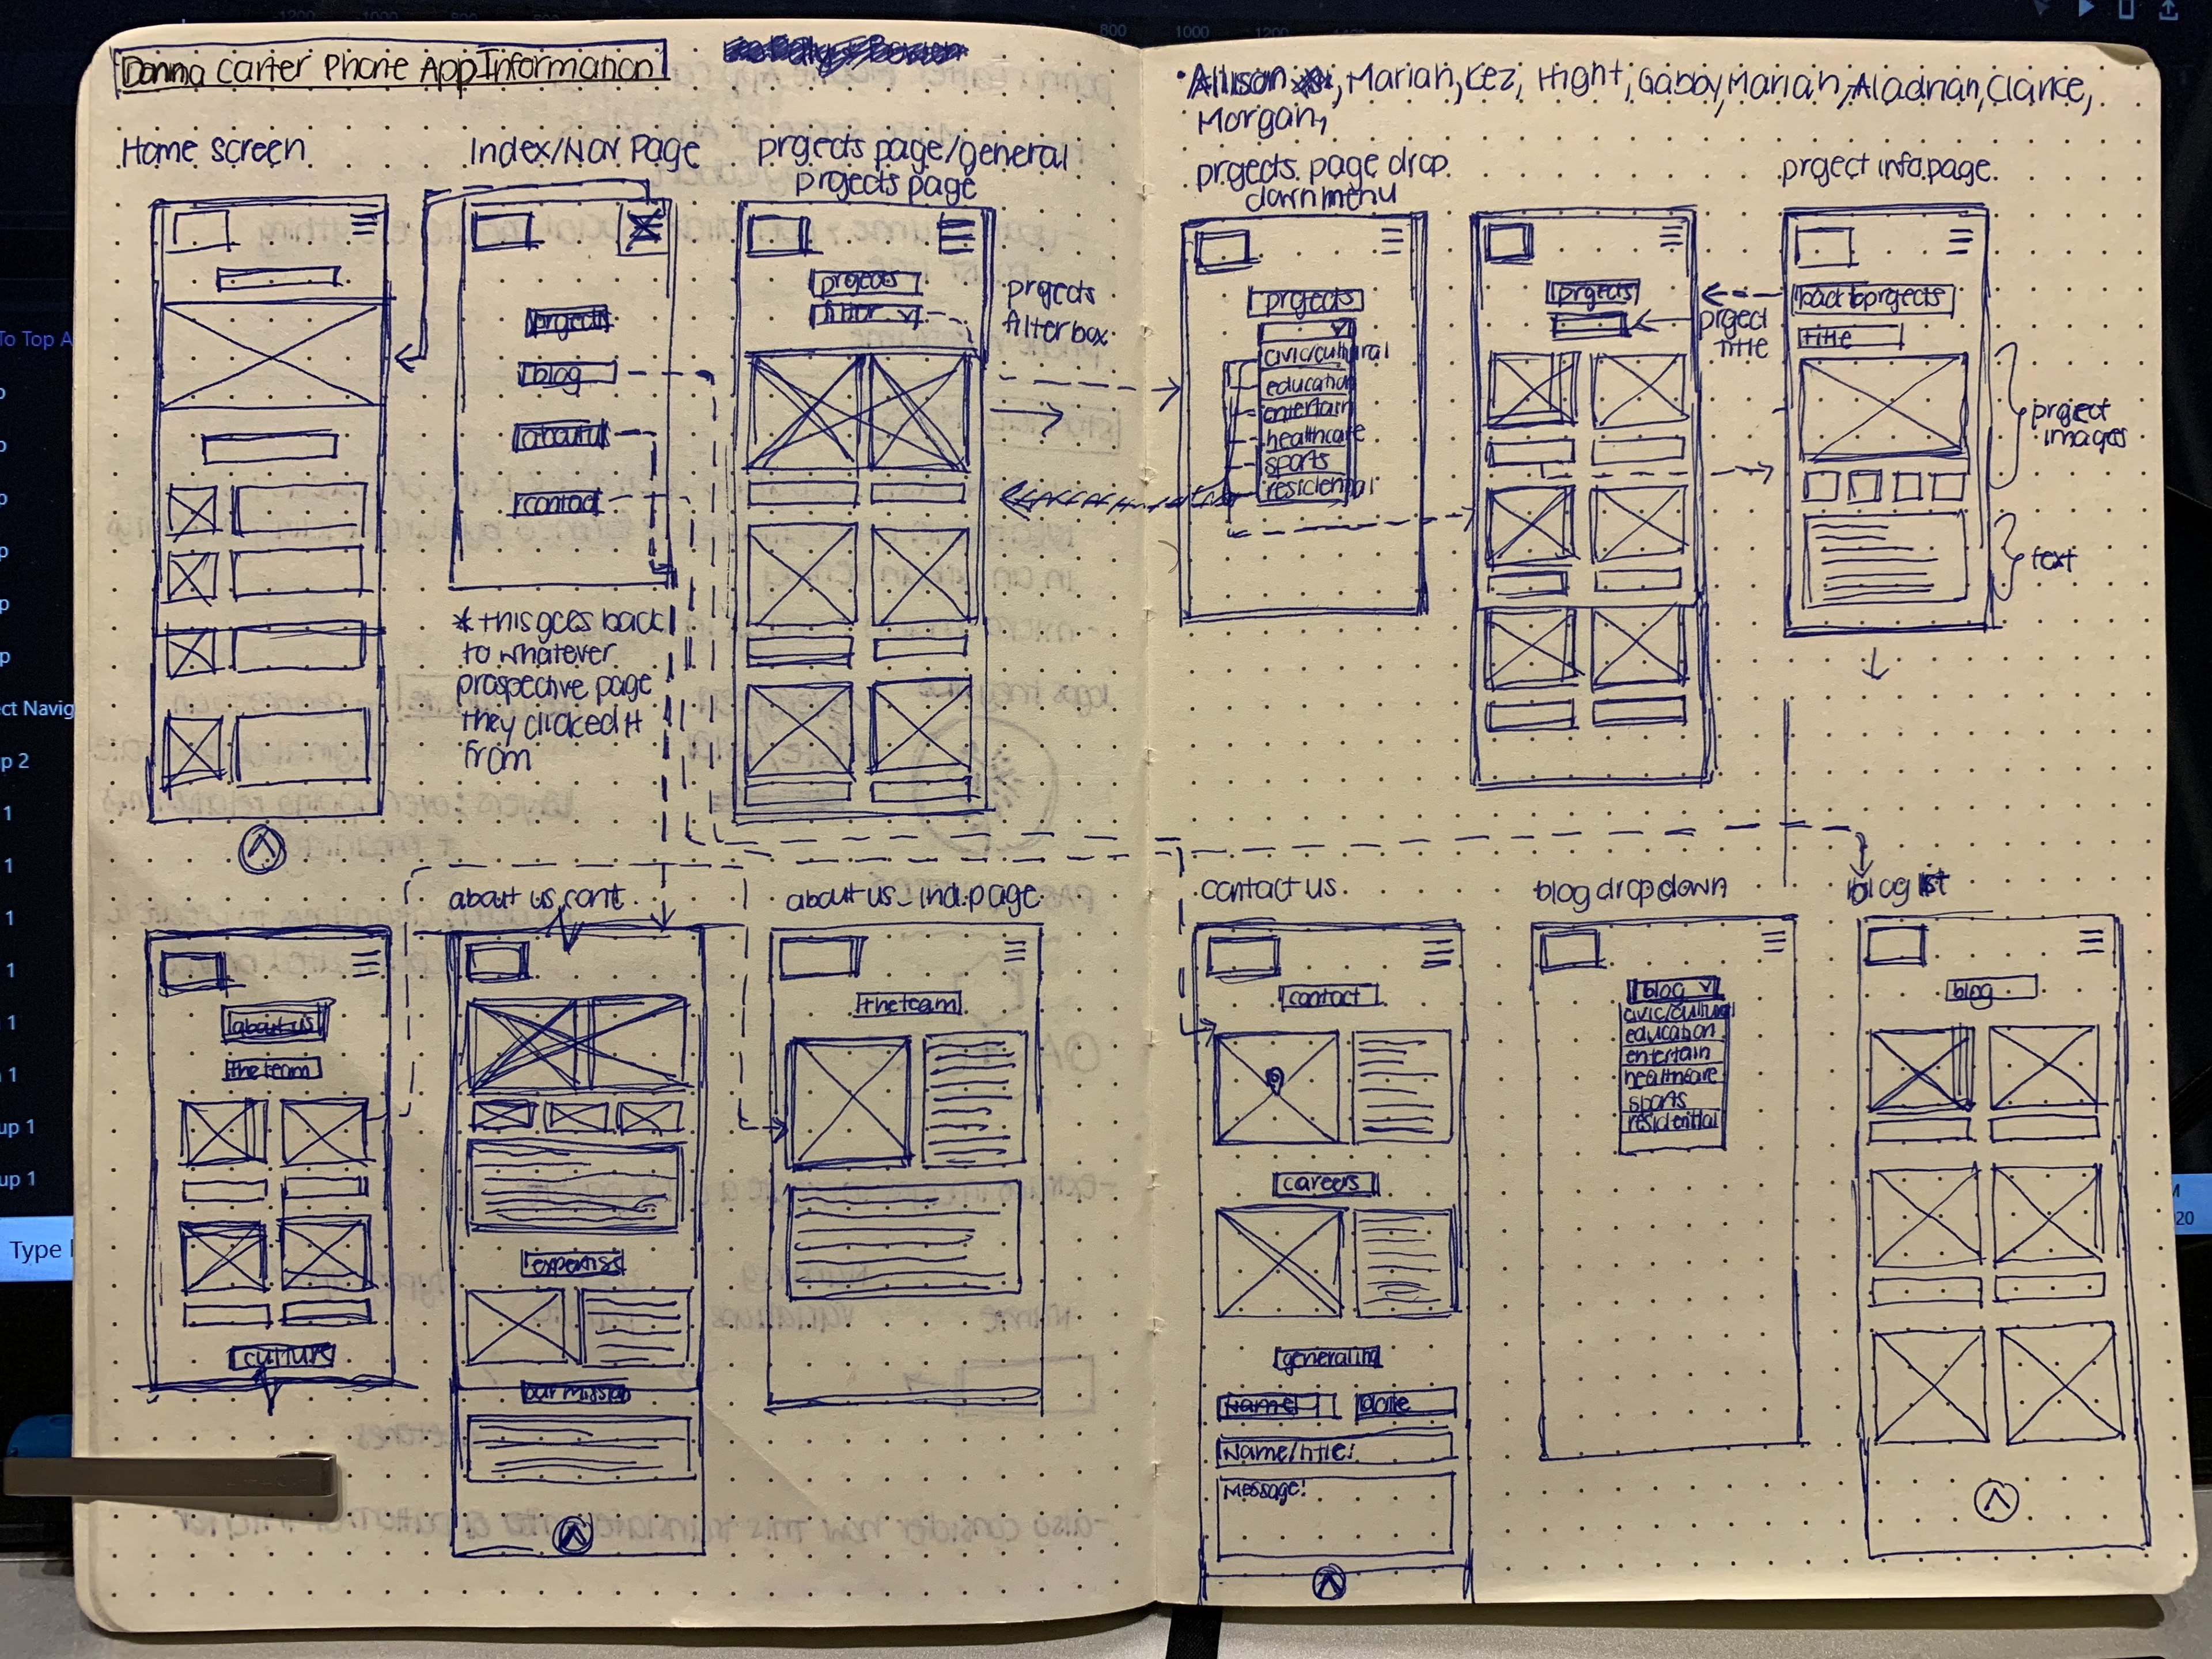 Donna Carter Phone App Information
Alison, Marian, Kez, Hight, Gabby, Marian, Aladrian, Clarice,
Morgan,
Home screen
Index/Nav Page
projects page/general
projects page
projects page drop
down menu
project info page
projects
blog
about
contact
* this goes back
to whatever
prospective page
they clicked it
from
projects
filter
projects
filter box
projects
civic/cultural
education
entertain
healthcare
sports
residential
projects
project
title
back to projects
title
project
images
text
about us cont.
about us - ind. page
contact us
blog drop down
blog list
about us
the team
culture
expertise
our mission
the team
contact
careers
general inq
Name
date
Name/title:
Message:
blog
civic/cultural
education
entertain
healthcare
sports
residential
blog
To Top A
ct Navig
p 2
up 1
up 1
Type
800
1000
1200
20